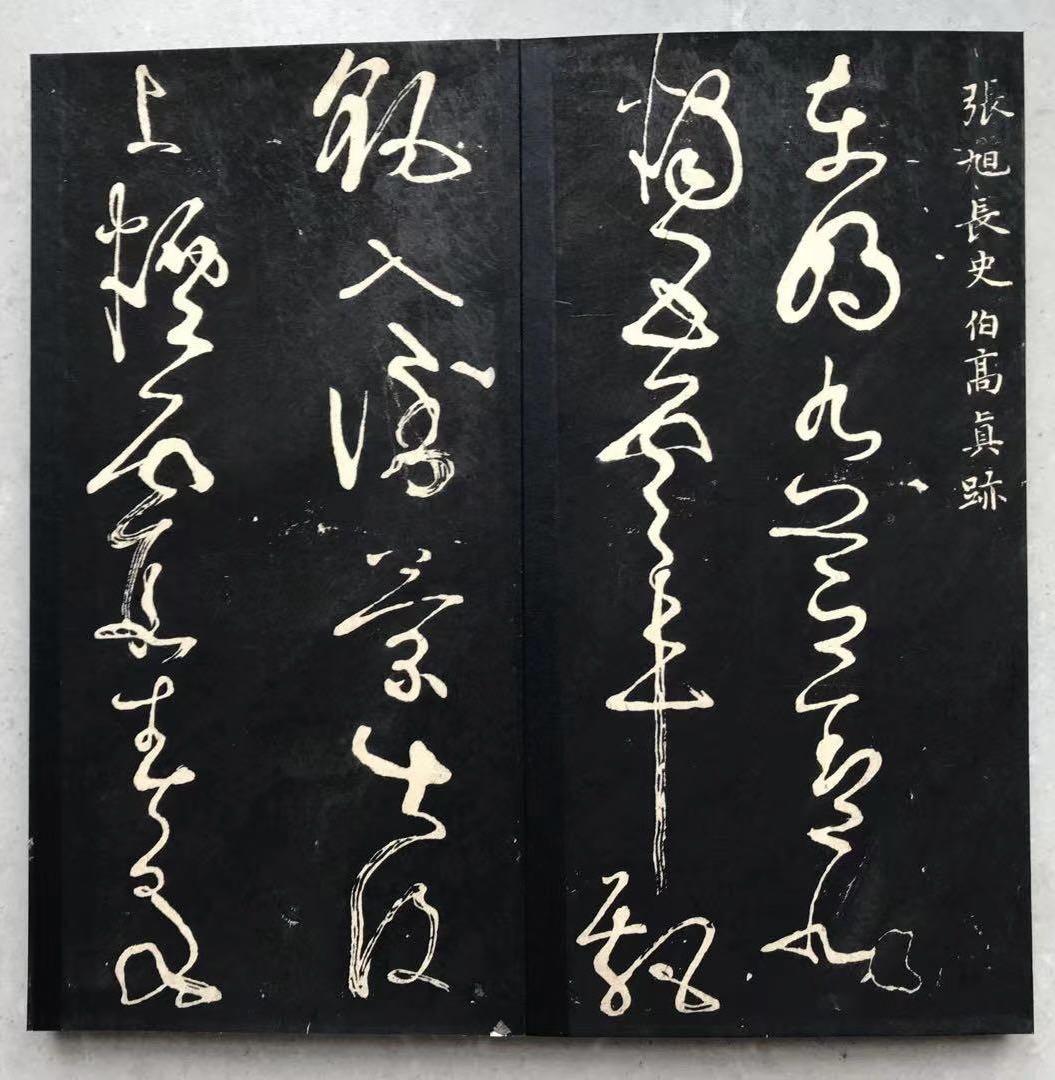 張旭長史伯高真跡
東明九芝蓋北
燭五雲車飄
飖入倒景出沒
上煙霞春泉